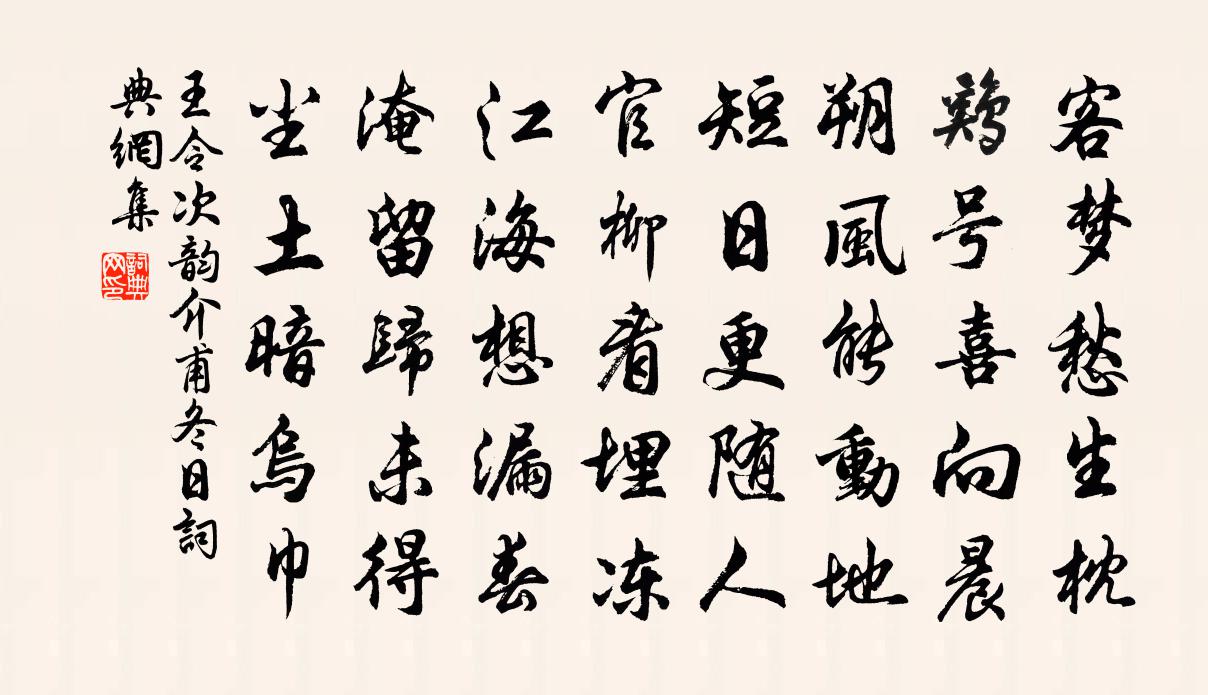 客梦愁生枕
鷄号喜向晨
朔風能動地
短日更随人
官柳看埋冻
江海想漏春
淹留歸未得
坐土暗烏巾
王令次韵介甫冬日詞
典網集
詞典网印